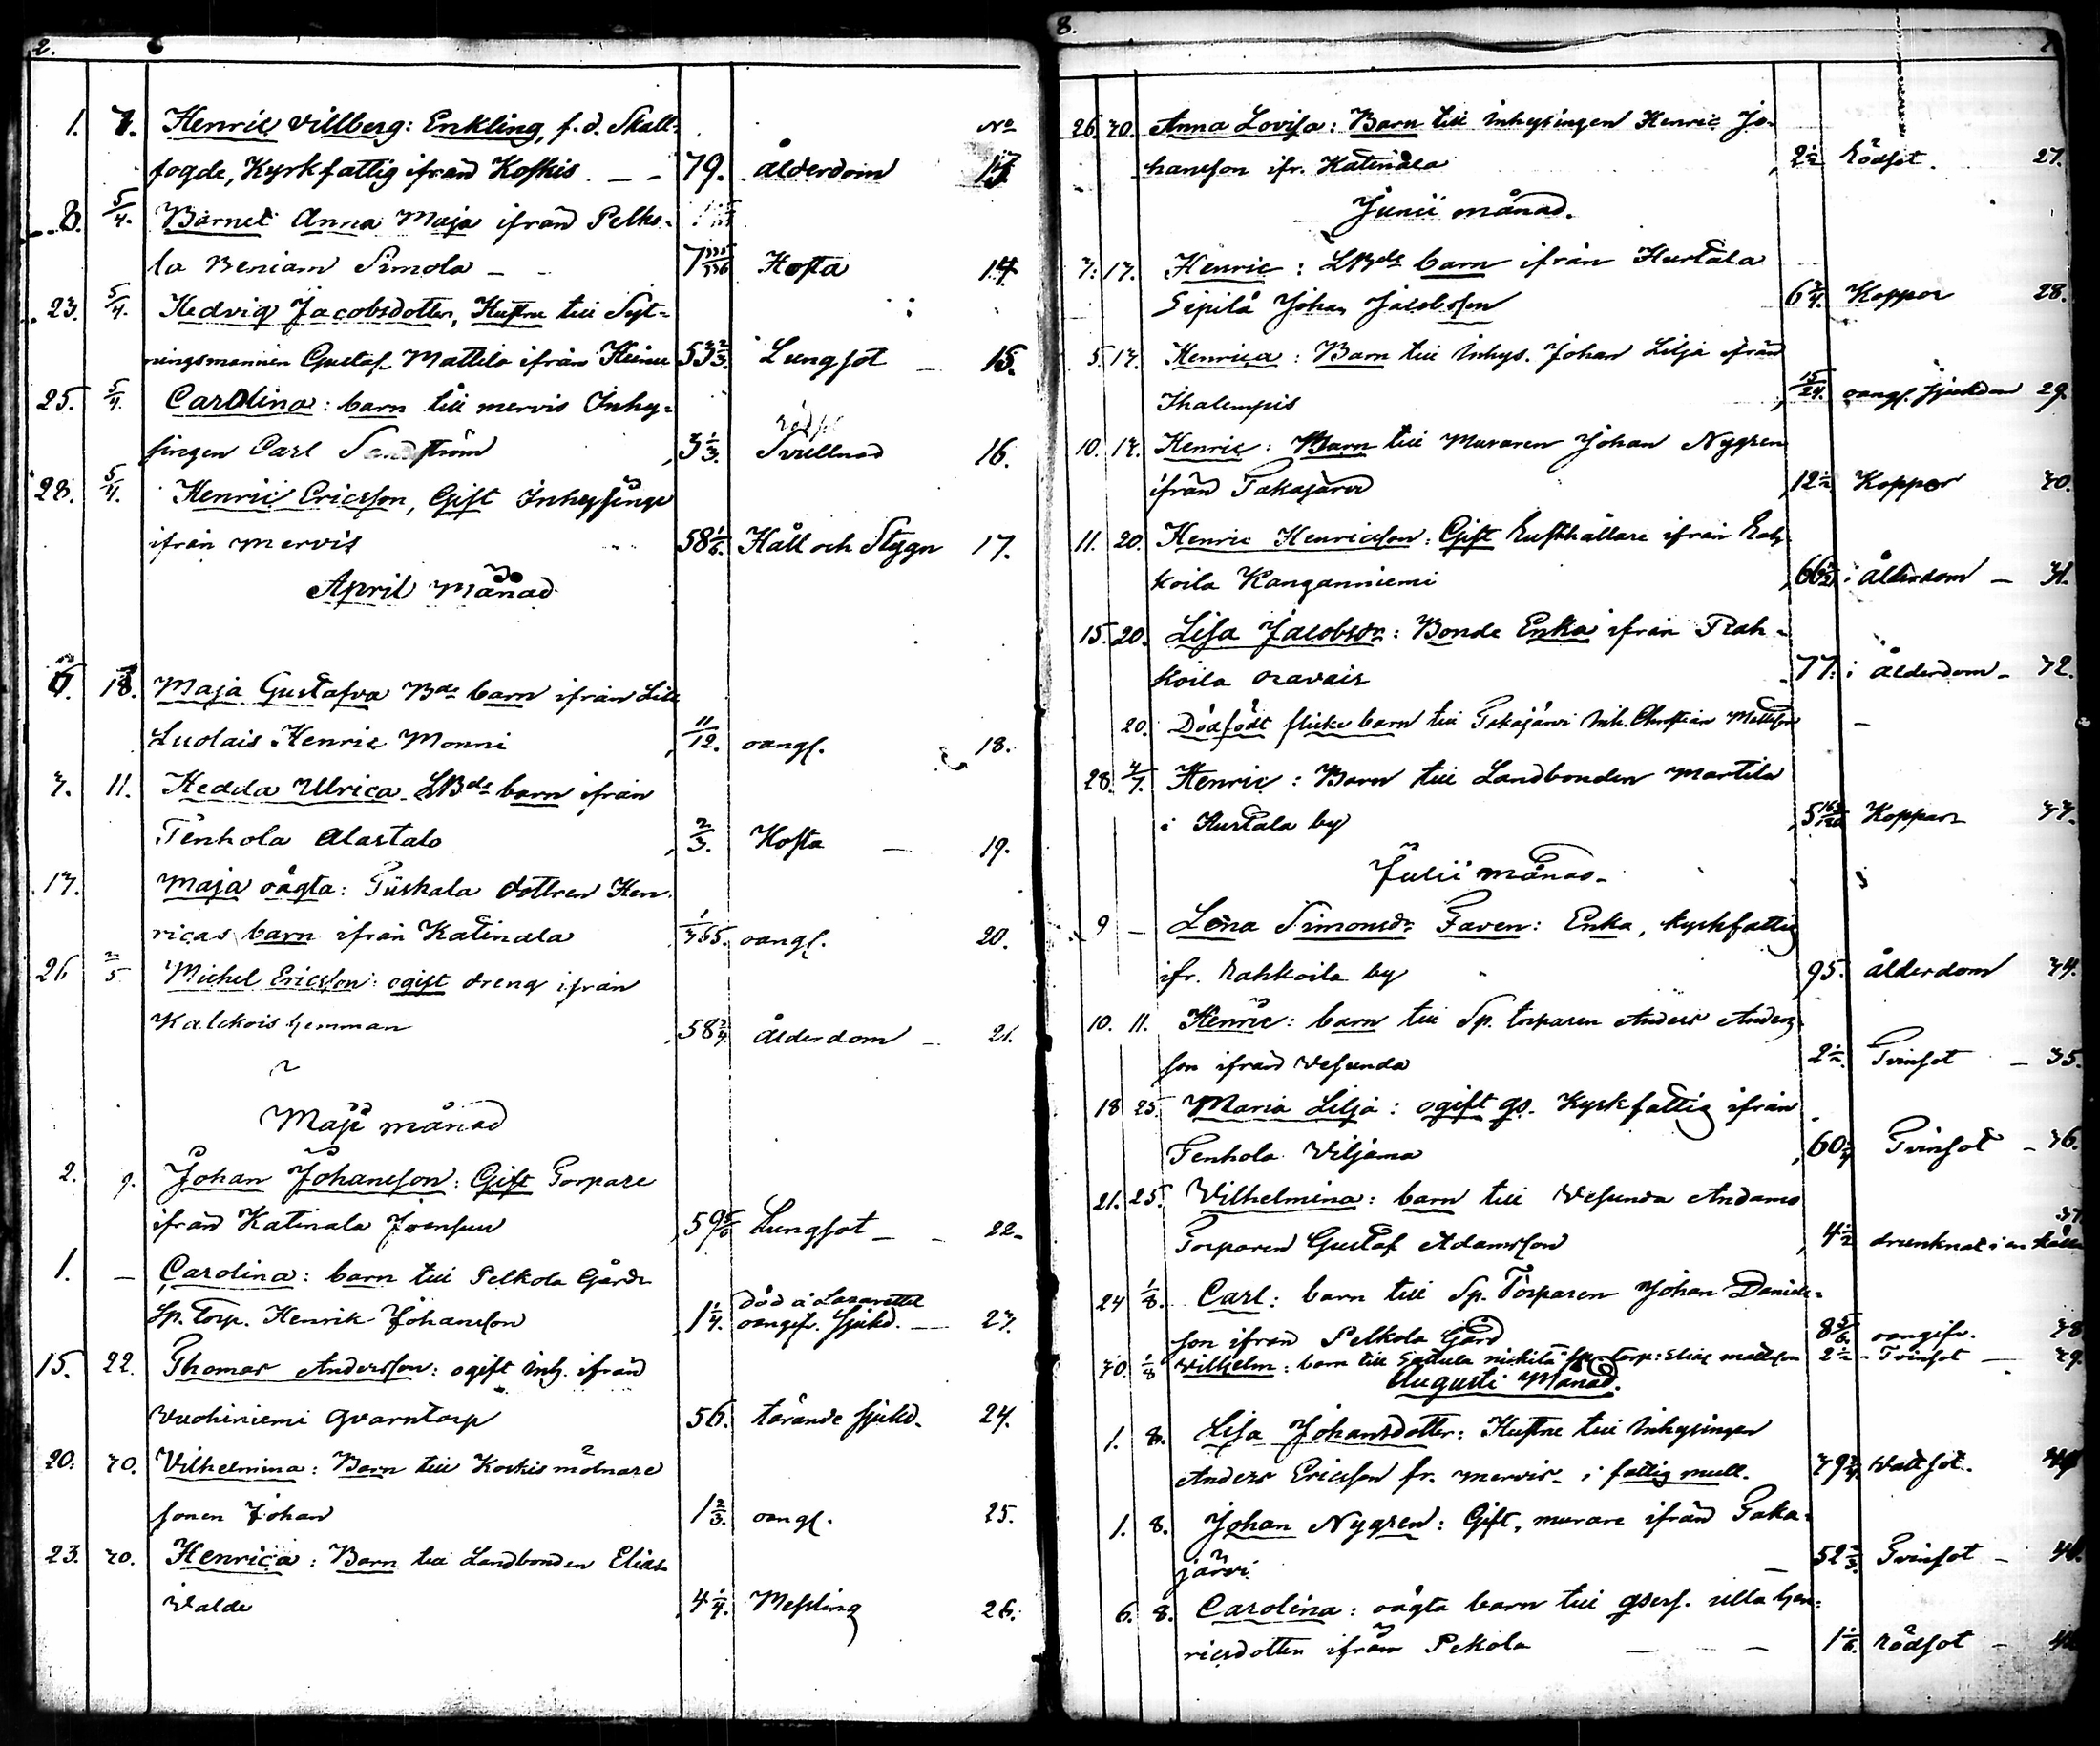 2.
No
1. 7. Henric Villberg: Enkling, f.d. Stall-
fogde, Kyrkfattig ifrån Koskis 79. ålderdom 13
8. 5/4. Barnet Anna Maja ifrån Pelko-
la Beniam Simola 7 Hosta 14.
23. 5/4. Hedvig Jacobsdotter, Hustru till Syt-
ningsmannen Gustaf Mattila ifrån 53 2/3. Lungsot 15.
25. 5/4. Carolina: barn till Mervis Inhy-
singen Carl Sandström 3 1/3. Svullnad 16.
28. 5/4. Henric Ericsson, Gift Inhysinge
ifrån Mervis 58 1/6. Håll och Stygn 17.
April Månad
18. Maja Gustafva Bde barn ifrån Lill
Luolais Henric Monni 11/12. oangf. 18.
3. 11. Hedda Ulrica LBde barn ifrån
Tenhola Alastalo 2/3. Hosta 19.
13. Maja oägta: Tiiskala dottren Hen-
ricas barn ifrån Katinala 1/365. oangf. 20.
26 2/5 Michel Ericsson: ogift dreng ifrån
Kalckois hemman 58 3/4. Ålderdom 21.
Maji månad
2. 9. Johan Johansson: Gift Torpare
ifrån Katinala Joensuu 59 5/6 Lungsot 22.
1. – Carolina: barn till Pelkola Gårds
Sp. Torp. Henrik Johansson 1 1/4. död å Lazarettet oangifv. sjukd. 23.
15. 22. Thomas Andersson: ogift inh. ifrån
Vuohiniemi Qvarntorp 56. tärande sjukd. 24.
20. 30. Vilhelmina: Barn till Koskis mölnare
sonen Johan 1 2/3. oangf. 25.
23. 30. Henrica: Barn till Landbonden Elias
Walde 4 1/4. Messling 26.
8.
26. 30. Anna Lovisa: Barn till inhysingen Henric Jo-
hansson ifr. Katinala 2 1/2 Rödsot. 27.
Junii månad.
3. 13. Henric: LBde barn ifrån Hurtala
Sipilä Johan Jacobsson 6 3/4. Koppor 28.
5. 13. Henrica: Barn till inhys. Johan Lilja ifrån
Ihalempis 15/24. oangf. sjukdom 29.
10. 13. Henric: Barn till Muraren Johan Nygren
ifrån Takajärvi 12 1/2 Koppor 30.
11. 20. Henric Henricsson: Gift Rusthållare ifrån Rah-
koila Kanganniemi 66 1/2 ålderdom 31.
15. 20. Lisa Jacobsdr: Bonde Enka ifrån Rah-
koila Oravais 77. ålderdom 32.
20. Dödfödt flicke barn till Takajärvi Inh. Christian Mattsson –
28. 4/7. Henric: Barn till Landbonden Martila
i Hurtala by 5 Koppor 33.
Julii månad.
9 – Lena Simonsdr Faven: Enka, kyrkfattig
ifr. Rahkoila by 95. ålderdom 34.
10. 11. Henric: barn till Sp. torparen Anders Anders-
son ifrån Vesunda 2 1/2. Tvinsot 35.
18 25. Maria Lilja: ogift qs. Kyrkfattig ifrån
Tenhola Viljama 60 Tvinsot 36.
21. 25. Vilhelmina: barn till Vesunda Andams
Torparen Gustaf Adamsson 4 1/2 drunknat i en källa 37
24 1/8. Carl: barn till Sp. Torparen Johan Daniels-
son ifrån Pelkola Gård 8 5/6. oangifv. 38
30. 1/8 Vilhelm: barn till Sattula Nickilä Sp. Torp: Elias Mattsson 2 1/2 Tvinsot 39.
Augusti Månad.
1. 8. Lisa Johansdotter: Hustru till inhysingen
Anders Ericsson fr. Mervis i fattig mull. 39 3/4 Wattsot. 40
1. 8. Johan Nygren: Gift, murare ifrån Taka-
järvi 52 2/3. Tvinsot 41.
6. 8. Carolina: oägta barn till qvesp. Ulla Hen-
ricsdotter ifrån Pekola 1 1/6. rödsot 42